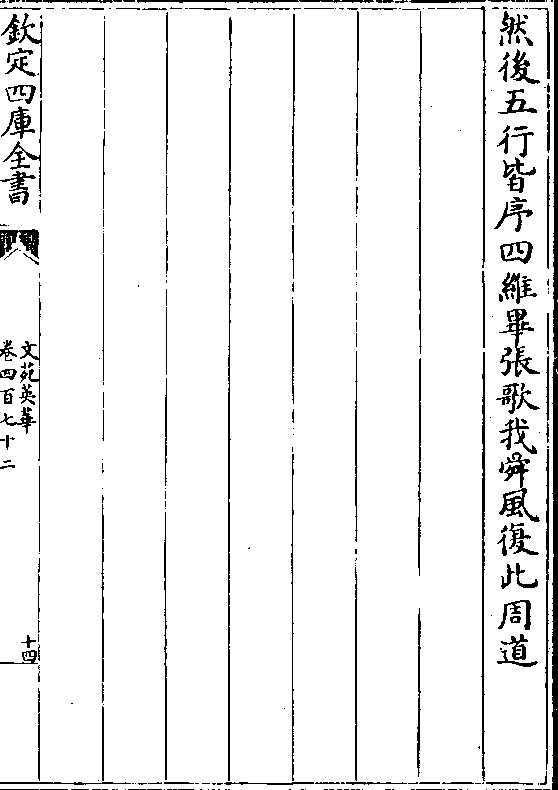 然後五行皆序四維畢張歌我舜風復此周道
欽定四庫全書
文苑英華
卷四百七十二
十四